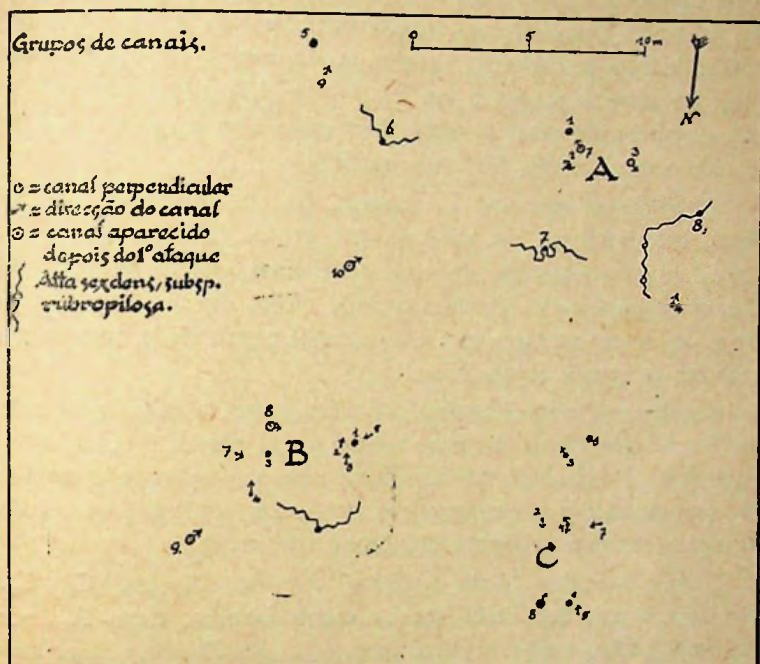 Grupos de canais.
0 5 10 m
N
o = canal perpendicular
= direcção do canal
⊙ = canal aparecido
depois do 1º ataque
Atta sexdens, subsp.
rubropilosa.
5
9
6
1
7
3
A
2
7
8
4
8
B
7
3
4
9
1
3
2
7
C
8